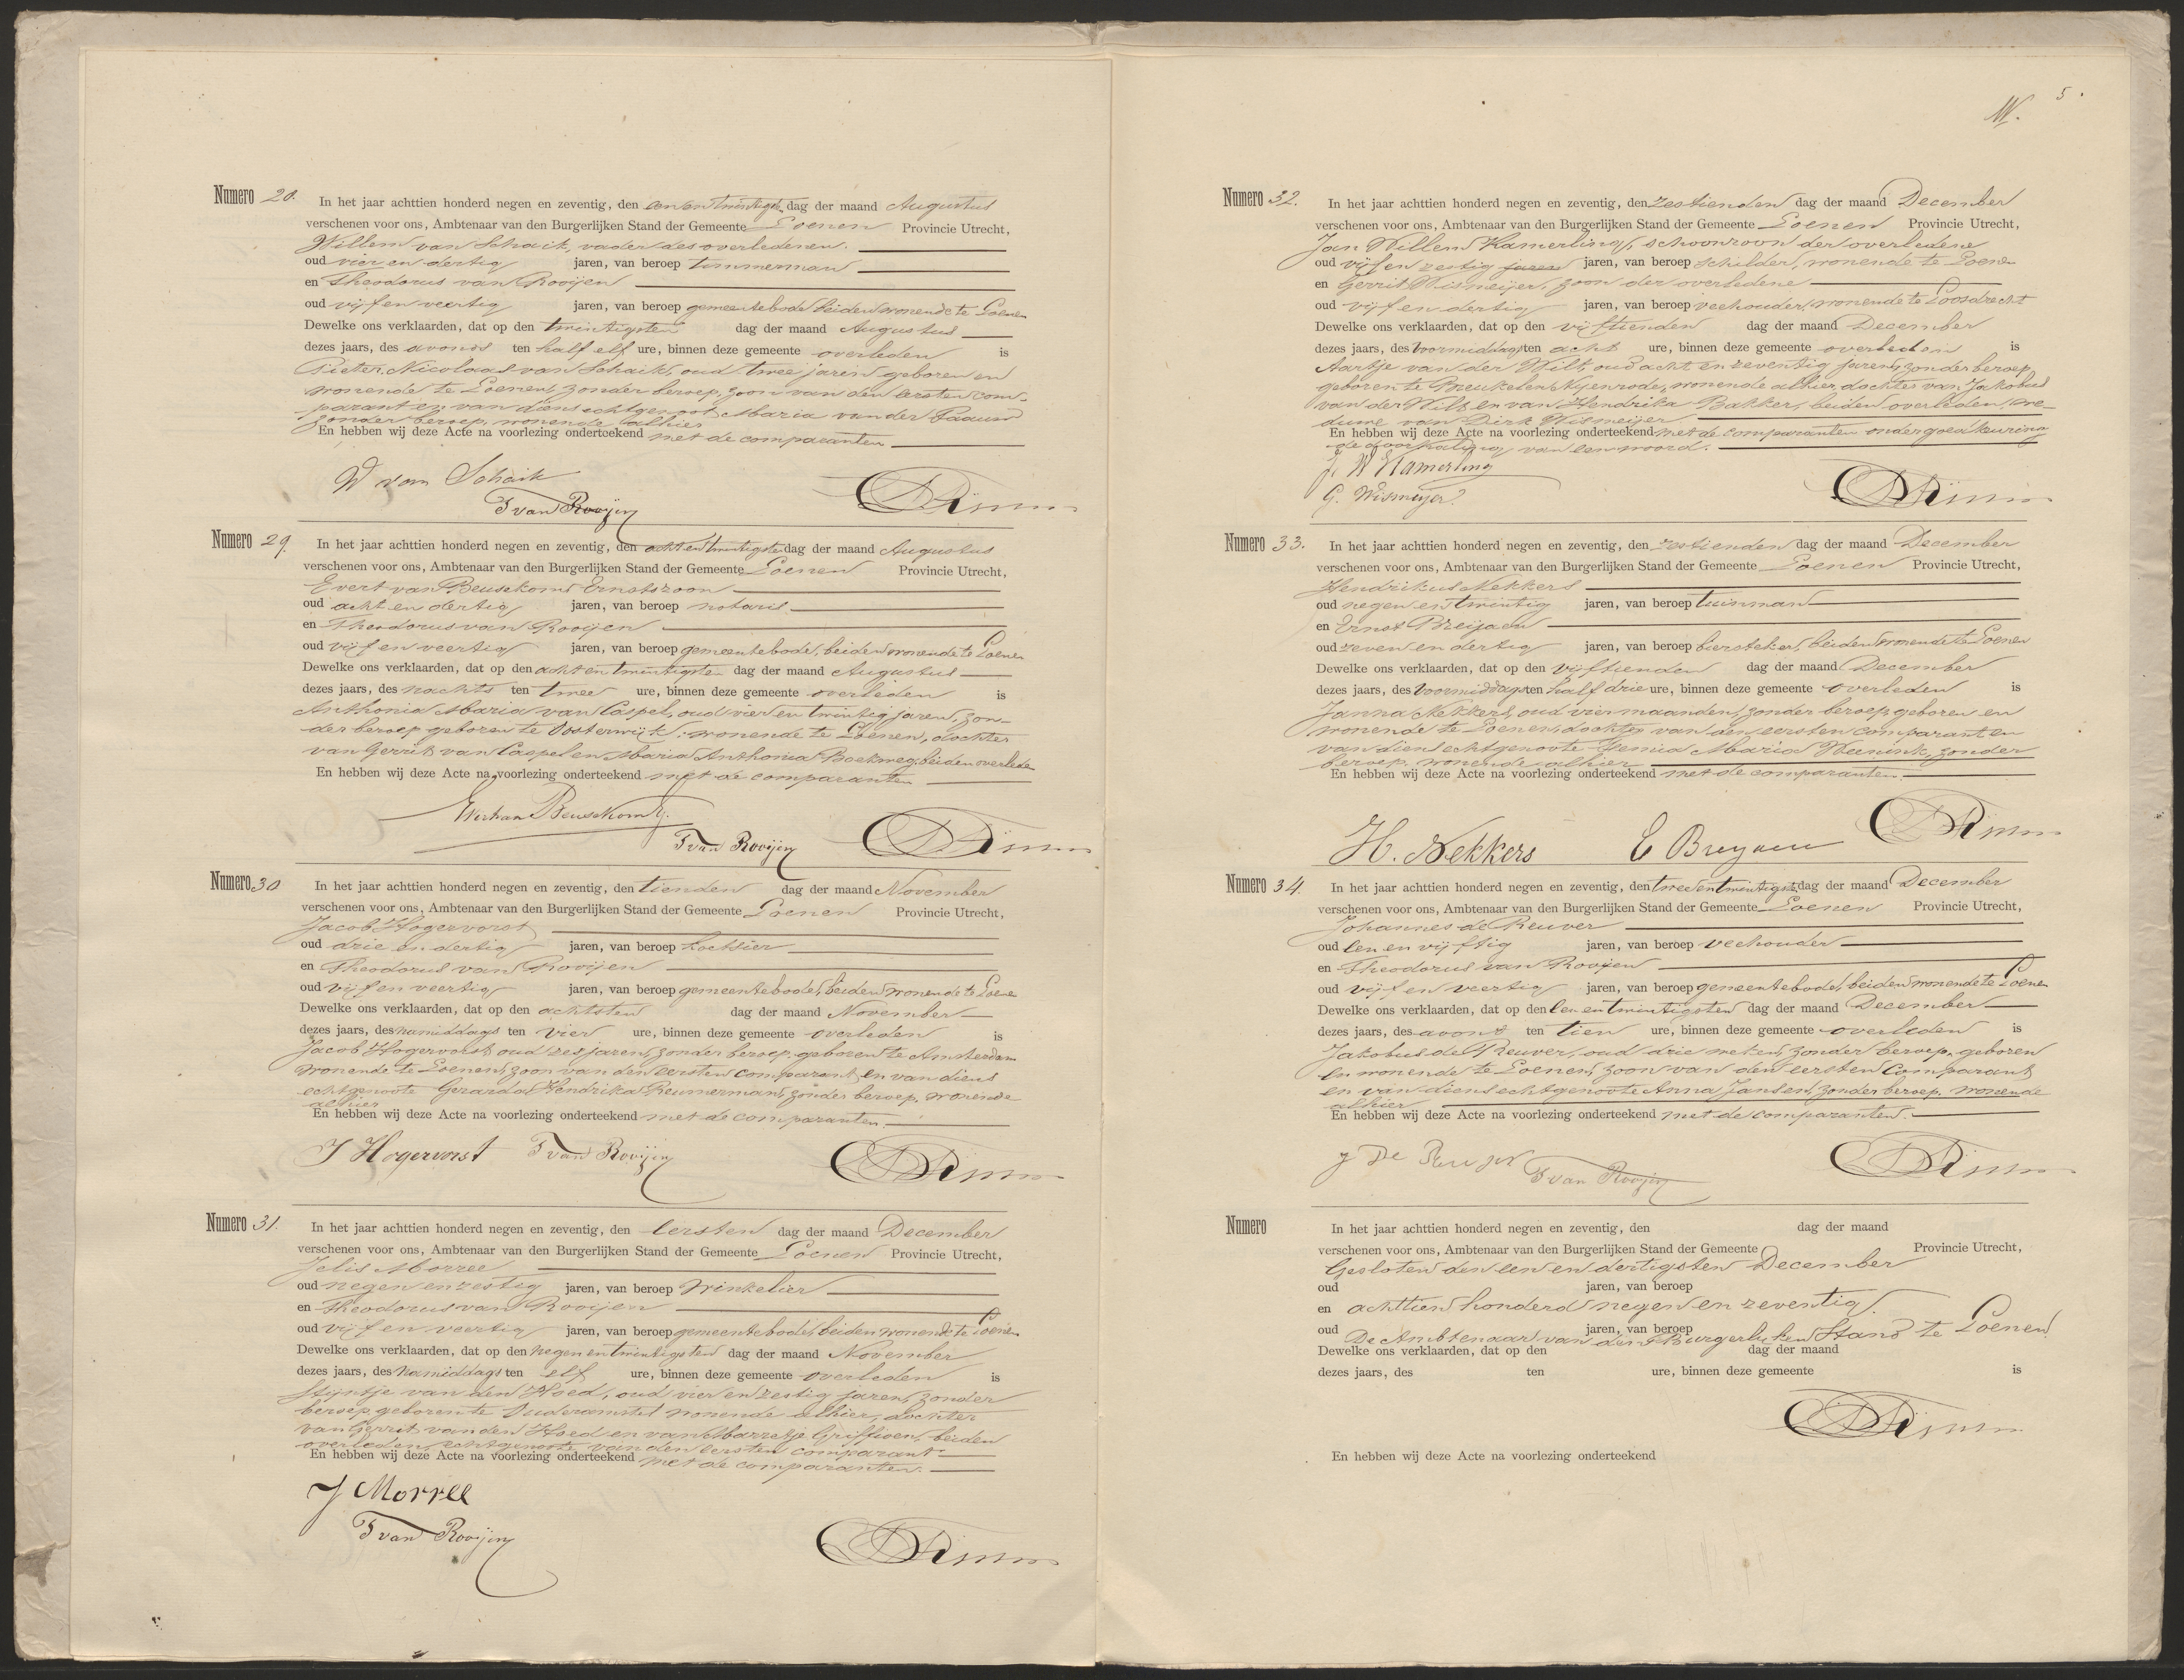 Numero 28. In het jaar achttien honderd negen en zeventig, den een en twintigsten dag der maand Augustus
verschenen voor ons, Ambtenaar van den Burgerlijken Stand der Gemeente Loenen Provincie Utrecht,
Willem van Schaik, vader des overledenen.
oud vier en dertig jaren, van beroep timmerman
en Theodorus van Rooijen
oud vijf en veertig jaren, van beroep gemeentebode, beiden wonende te Loenen
Dewelke ons verklaarden, dat op den twintigsten dag der maand Augustus
dezes jaars, des avonds ten half elf ure, binnen deze gemeente overleden is
Pieter Nicolaas van Schaik, oud twee jaren geboren en
wonende te Loenen, zonder beroep, zoon van den eersten com-
parant en van diens echtgenoot Maria van der Paauw
zonder beroep, wonende alhier
En hebben wij deze Acte na voorlezing onderteekend met de comparanten
W van Schaik
T van Rooijen
Numero 29. In het jaar achttien honderd negen en zeventig, den acht en twintigsten dag der maand Augustus
verschenen voor ons, Ambtenaar van den Burgerlijken Stand der Gemeente Loenen Provincie Utrecht,
Evert van Beusekom Ernstszoon
oud acht en dertig jaren, van beroep notaris
en Theodorus van Rooijen
oud vijf en veertig jaren, van beroep gemeentebode, beiden wonende te Loenen
Dewelke ons verklaarden, dat op den acht en twintigsten dag der maand Augustus
dezes jaars, des nachts ten twee ure, binnen deze gemeente overleden is
Anthonia Maria van Caspel, oud vier en twintig jaren, zon-
der beroep geboren te Oosterwijk, wonende te Loenen, dochter
van Gerrit van Caspel en Maria Anthonia Boekweg, beiden overleden
En hebben wij deze Acte na voorlezing onderteekend met de comparanten
Ev. van Beusekom E.
T van Rooijen
Numero 30 In het jaar achttien honderd negen en zeventig, den tienden dag der maand November
verschenen voor ons, Ambtenaar van den Burgerlijken Stand der Gemeente Loenen Provincie Utrecht,
Jacob Hogervorst
oud drie en dertig jaren, van beroep koetsier
en Theodorus van Rooijen
oud vijf en veertig jaren, van beroep gemeentebode, beiden wonende te Loenen
Dewelke ons verklaarden, dat op den achtsten dag der maand November
dezes jaars, des namiddags ten vier ure, binnen deze gemeente overleden is
Jacob Hogervorst oud zes jaren, zonder beroep, geboren te Amsterdam
wonende te Loenen, zoon van den eersten comparant en van diens
echtgenoote Gerarda Hendrika Reumerman, zonder beroep, wonende
alhier
En hebben wij deze Acte na voorlezing onderteekend met de comparanten.
J Hogervorst T van Rooijen
Numero 31. In het jaar achttien honderd negen en zeventig, den eersten dag der maand December
verschenen voor ons, Ambtenaar van den Burgerlijken Stand der Gemeente Loenen Provincie Utrecht,
Jelis Morree
oud negen en zestig jaren, van beroep winkelier
en Theodorus van Rooijen
oud vijf en veertig jaren, van beroep gemeentebode, beiden wonende te Loenen
Dewelke ons verklaarden, dat op den negen en twintigsten dag der maand November
dezes jaars, des namiddags ten elf ure, binnen deze gemeente overleden is
Stijntje van den Hoed, oud vier en zestig jaren, zonder
beroep, geboren te Ouderamstel wonende alhier, dochter
van Gerrit van den Hoed en van Marretje Griffioen, beiden
overleden, echtgenoote van den eersten comparant
En hebben wij deze Acte na voorlezing onderteekend met de comparanten.
J Morree
T van Rooijen
5
Numero 32. In het jaar achttien honderd negen en zeventig, den zestienden dag der maand December
verschenen voor ons, Ambtenaar van den Burgerlijken Stand der Gemeente Loenen Provincie Utrecht,
Jan Willem Kamerling, schoonzoon der overledene
oud vijf en zestig jaren jaren, van beroep schilder, wonende te Loenen
en Gerrit Wismeijer, zoon der overledene
oud vijf en dertig jaren, van beroep veehouder, wonende te Loosdrecht
Dewelke ons verklaarden, dat op den vijftienden dag der maand December
dezes jaars, des voormiddags ten acht ure, binnen deze gemeente overleden is
Aartje van der Wilt, oud acht en zeventig jaren, zonder beroep
geboren te Breukelen Nijenrode, wonende alhier, dochter van Jakobus
van der Wilt en van Hendrika Bakker, beiden overleden, we-
duwe van Dirk Wismeijer
En hebben wij deze Acte na voorlezing onderteekend met de comparanten onder goedkeuring
de doorhaling van een woord.
J. W Kamerling
G. Wismeijer
Numero 33. In het jaar achttien honderd negen en zeventig, den zestienden dag der maand December
verschenen voor ons, Ambtenaar van den Burgerlijken Stand der Gemeente Loenen Provincie Utrecht,
Hendrikus Nekkers
oud negen en twintig jaren, van beroep tuinman
en Ernst Breijaen
oud zeven en dertig jaren, van beroep biersteker, beiden wonende te Loenen
Dewelke ons verklaarden, dat op den vijftienden dag der maand December
dezes jaars, des voormiddags ten half drie ure, binnen deze gemeente overleden is
Janna Nekkers, oud vier maanden, zonder beroep, geboren en
wonende te Loenen, dochter van den eersten comparant en
van diens echtgenoote Maria Weenink, zonder
beroep, wonende alhier
En hebben wij deze Acte na voorlezing onderteekend met de comparanten.
H. Nekkers E Breyaen
Numero 34. In het jaar achttien honderd negen en zeventig, den twee en twintigsten dag der maand December
verschenen voor ons, Ambtenaar van den Burgerlijken Stand der Gemeente Loenen Provincie Utrecht,
Johannes de Reuver
oud een en vijftig jaren, van beroep veehouder
en Theodorus van Rooijen
oud vijf en veertig jaren, van beroep gemeentebode, beiden wonende te Loenen
Dewelke ons verklaarden, dat op den een en twintigsten dag der maand December
dezes jaars, des avonds ten tien ure, binnen deze gemeente overleden is
Jakobus de Reuver, oud drie weken, zonder beroep, geboren
en wonende te Loenen, zoon van den eersten Comparant
en van diens echtgenoote Anna Jansen, zonder beroep, wonende
alhier
En hebben wij deze Acte na voorlezing onderteekend met de comparanten.
J De Reuver T van Rooijen
Numero In het jaar achttien honderd negen en zeventig, den dag der maand
verschenen voor ons, Ambtenaar van den Burgerlijken Stand der Gemeente Provincie Utrecht,
Gesloten den een en dertigsten December
oud jaren, van beroep
en achttien honderd negen en zeventig.
oud jaren, van beroep
De Ambtenaar van den Burgerlijken Stand te Loenen
Dewelke ons verklaarden, dat op den dag der maand
dezes jaars, des ten ure, binnen deze gemeente is
En hebben wij deze Acte na voorlezing onderteekend